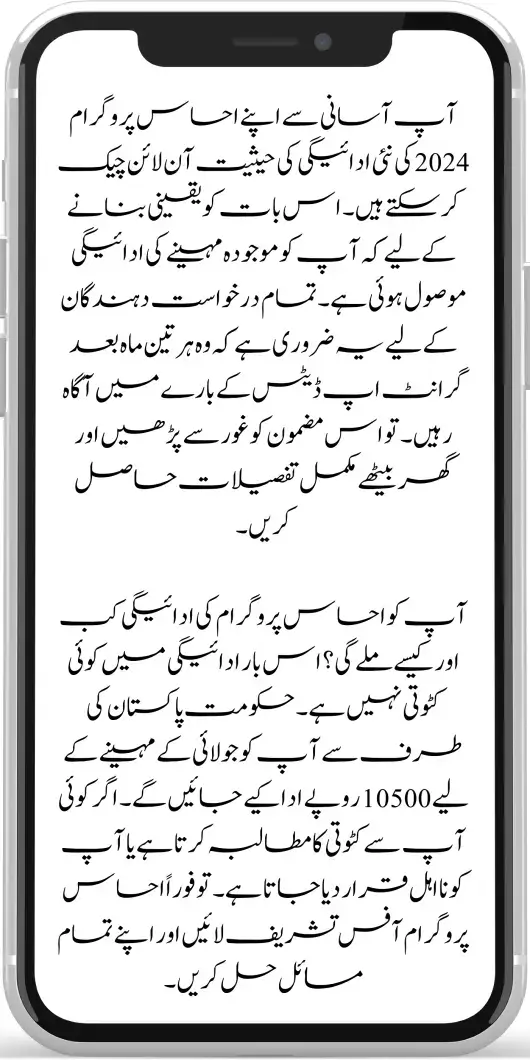 آپ آسانی سے اپنے احساس پروگرام
2024 کی نئی ادائیگی کی حیثیت آن لائن چیک
کر سکتے ہیں۔ اس بات کو یقینی بنانے
کے لیے کہ آپ کو موجودہ مہینے کی ادائیگی
موصول ہوئی ہے۔ تمام درخواست دہندگان
کے لیے یہ ضروری ہے کہ وہ ہر تین ماہ بعد
گرانٹ اپ ڈیٹس کے بارے میں آگاہ
رہیں۔ تو اس مضمون کو غور سے پڑھیں اور
گھر بیٹھے مکمل تفصیلات حاصل
کریں۔
آپ کو احساس پروگرام کی ادائیگی کب
اور کیسے ملے گی؟ اس بار ادائیگی میں کوئی
کٹوتی نہیں ہے۔ حکومت پاکستان کی
طرف سے آپ کو جولائی کے مہینے کے
لیے 10500 روپے ادا کیے جائیں گے۔ اگر کوئی
آپ سے کٹوتی کا مطالبہ کرتا ہے یا آپ
کو نااہل قرار دیا جاتا ہے۔ تو فوراً احساس
پروگرام آفس تشریف لائیں اور اپنے تمام
مسائل حل کریں۔